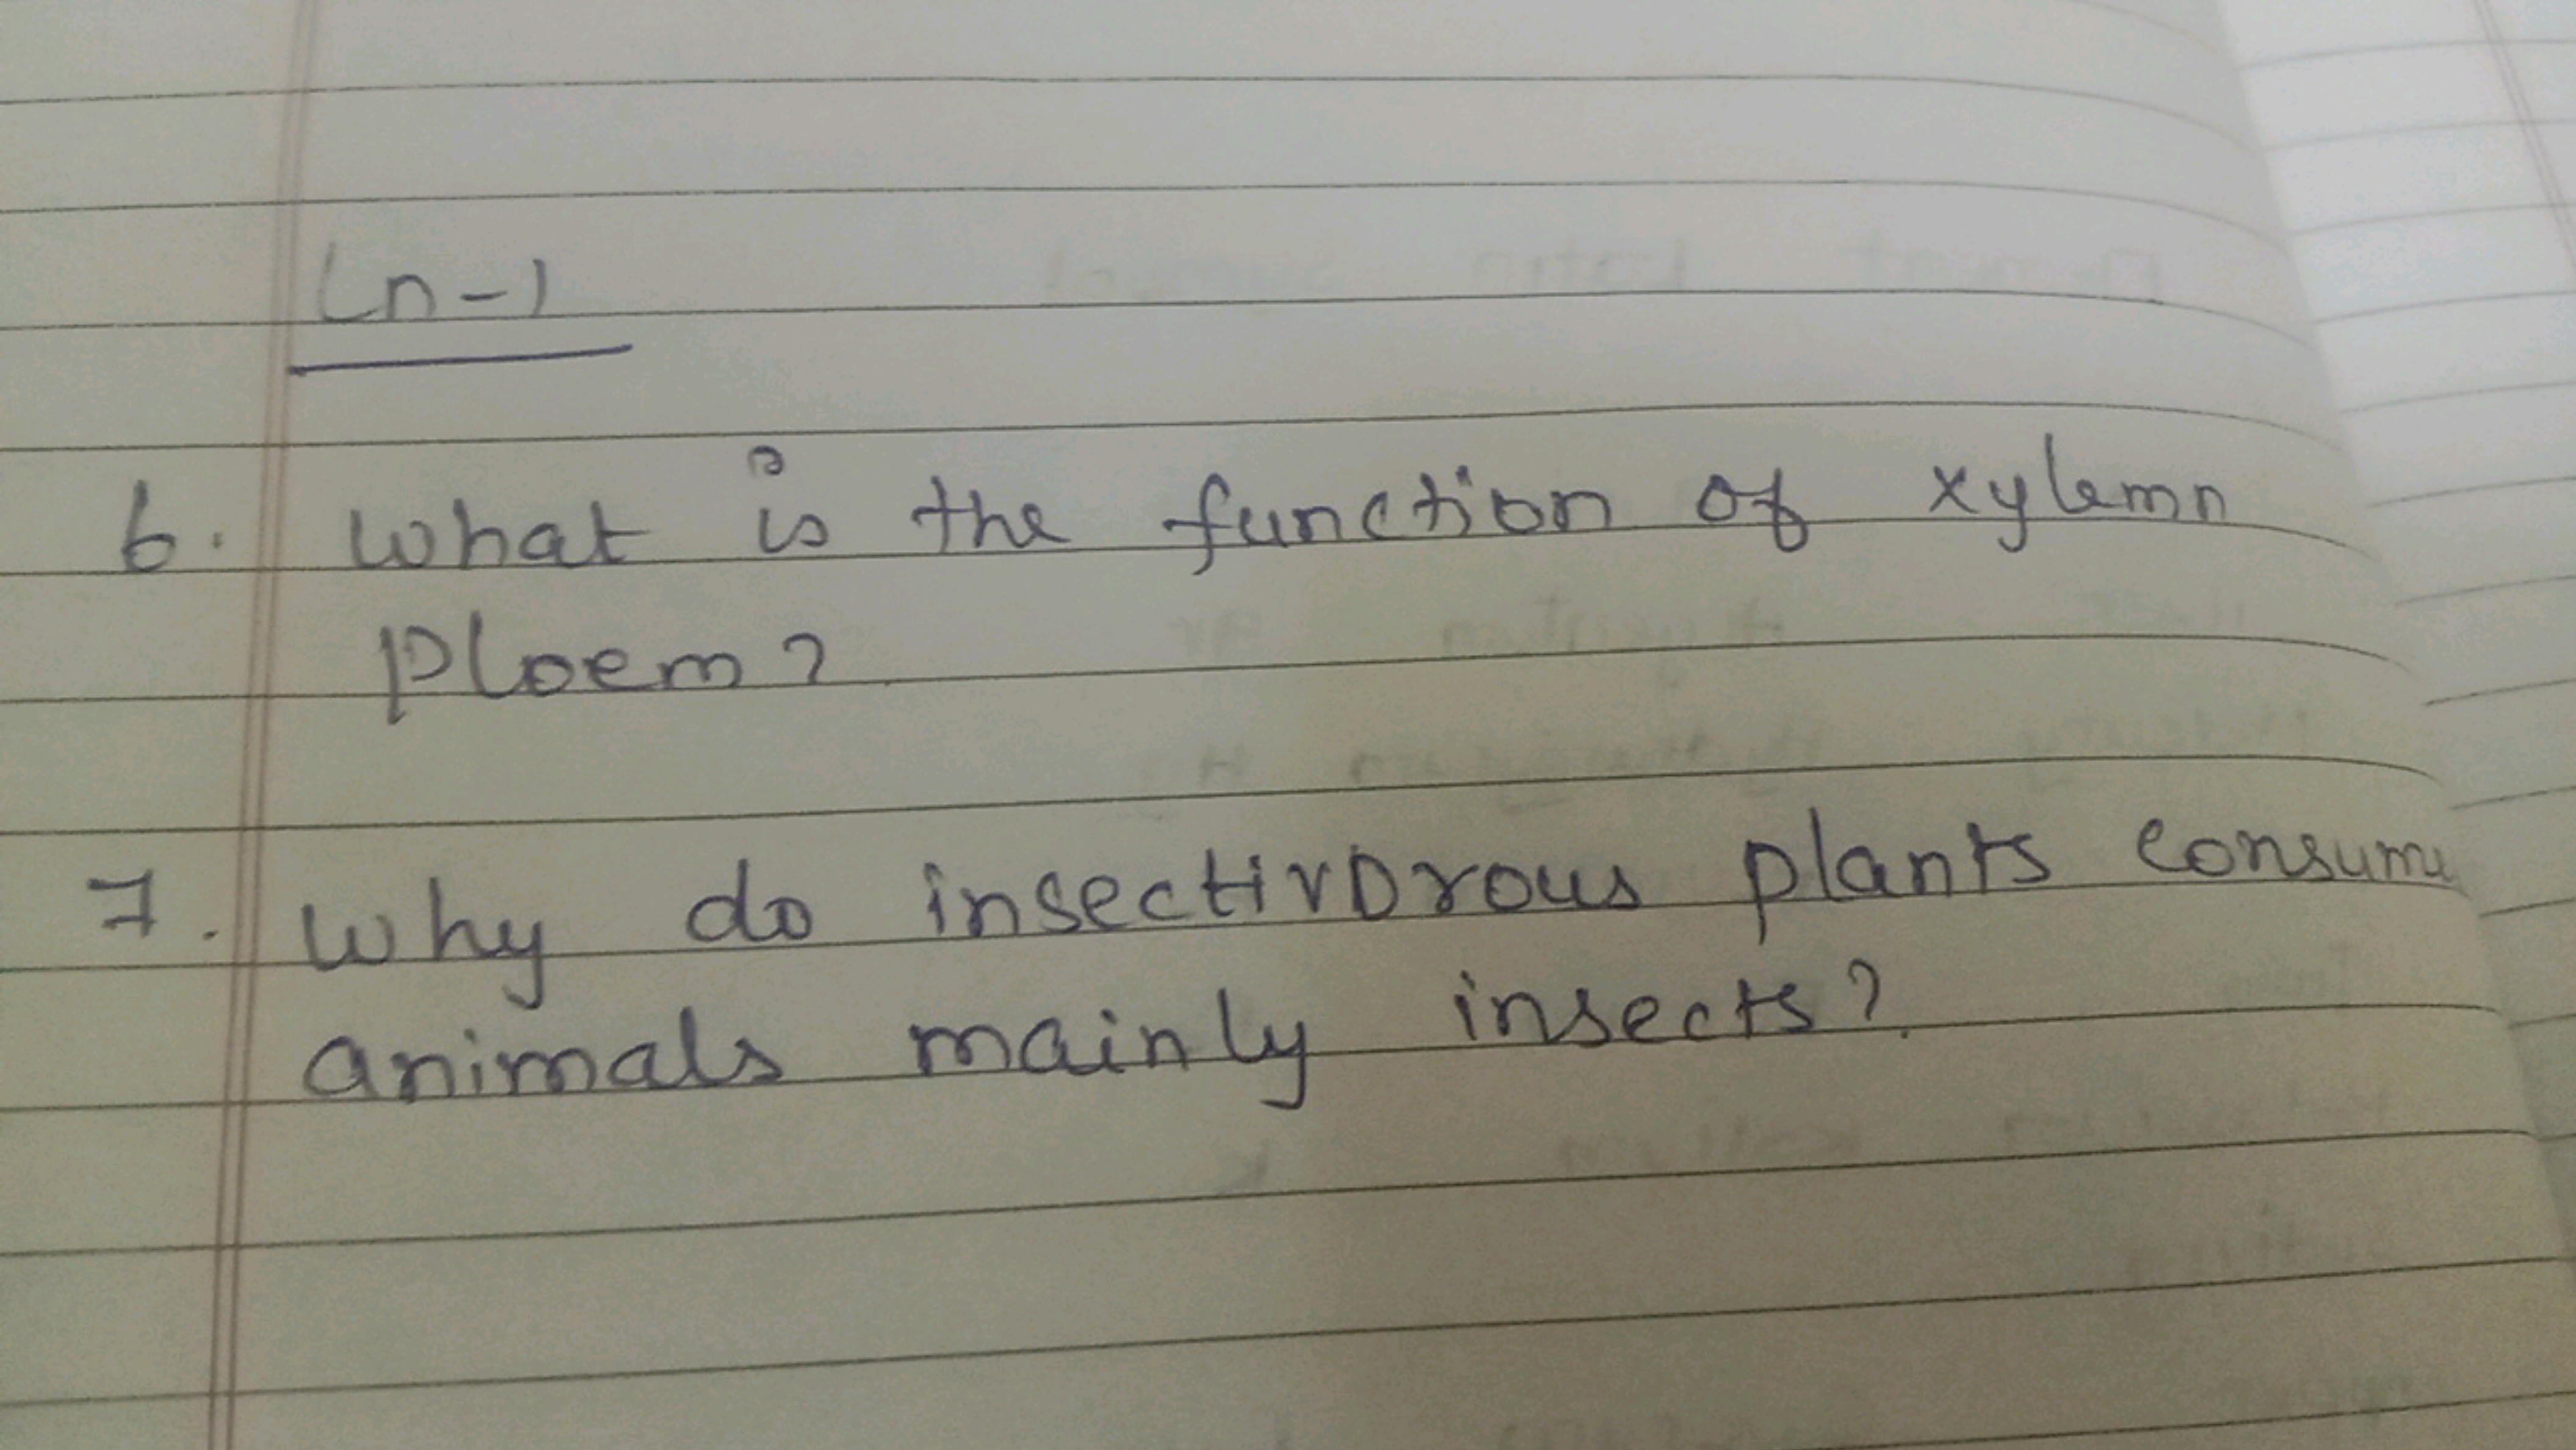 Ln-1
6. What is the function of xylemn
ploem?
7. Why do insectivorous plants consume
animals mainly insects?